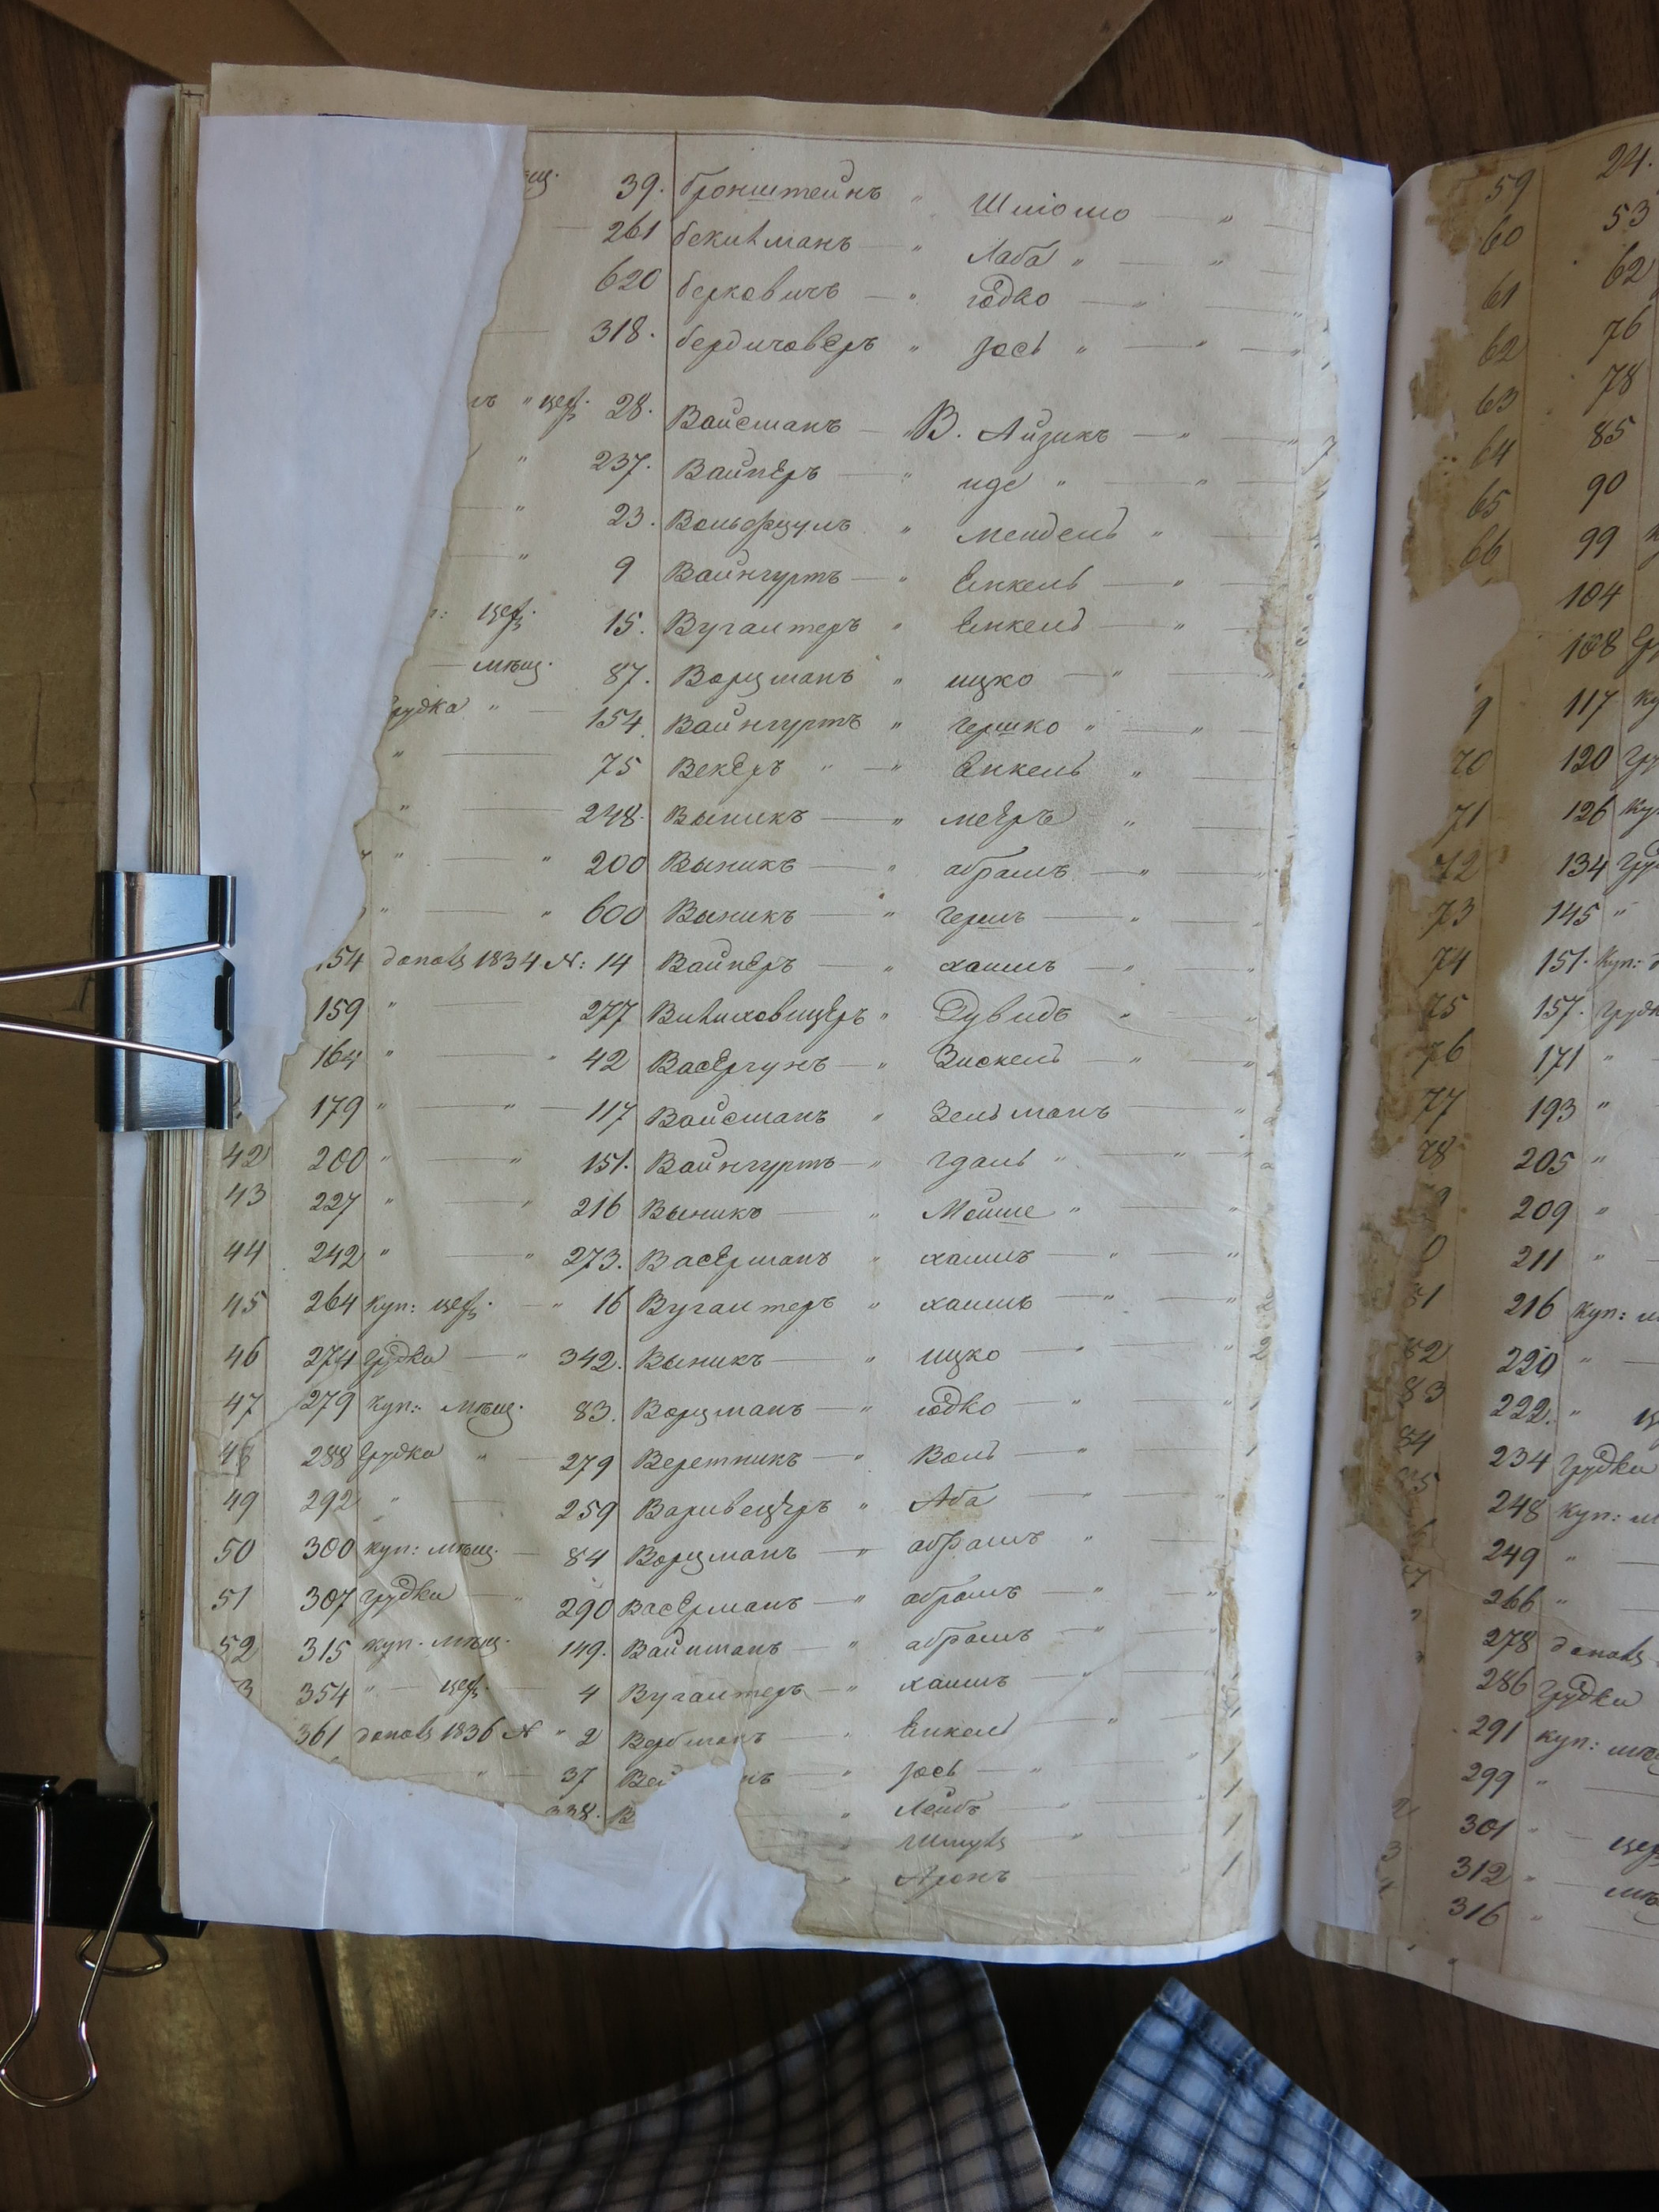 39. бронштейнъ " Шлiомо "
261 бекилманъ " Лаба " "
620 берковичъ " юдко "
318. бердичовѣръ " Іось " " "
" цех. 28. Вайсманъ В. Айзикъ " " 1
" 237. Вайнеръ " иде " " "
" 23. Вольфзунъ " Мендель "
" 9 Вайнгуртъ " Енкель "
цех. 15. Вугалтеръ " Енкель "
мѣщ. 87. Ворцманъ " ицко "
Грудка " 154. Вайнгуртъ " гершко " "
" 75 Векеръ " " Енкель "
" 248. Выникъ " меѣръ "
" " 200 Выникъ " абрамъ "
" " 600 Выникъ " гершъ "
154 допов 1834 N: 14 Вайнеръ " хаимъ " "
159 " 277 " Дувидъ " "
164 " " 42 Васергунъ " Зискель " "
179 " " 117 Вайсманъ " Зельманъ "
42 200 " " 151. Вайнгуртъ " гдаль " " "
43 227 " " 216 Выникъ " Мойше " "
44 242 " " 273. Васерманъ " хаимъ " "
45 264 куп: цех. " 16 Вугалтеръ " хаимъ " "
46 274 Грудка " 342. Выникъ " ицко " " 2
47 279 куп: мѣщ. 83. Ворцманъ " юдко " "
48 288 Грудка " 279 Веретникъ " Воль " 1
49 292 " 259 " Аба " "
50 300 куп: мѣщ. 84 Ворцманъ " абрамъ "
51 307 Грудка " 290 Васерманъ " абрамъ " "
52 315 куп. мѣщ. 149. Вайнманъ " абрамъ " "
3 354 " цех. 4 Вугалтеръ " хаимъ "
361 допов 1836 N " 2 Вербманъ " Енкель " 1
" 37 Вей нъ " Іось " " 1
338. В " Лейбъ " " 1
" " 1
" Аронъ " " 1
59 24.
60 53
61 62
62 76
63 78
64 85
65 90
66 99
104
108 Гр
9 117 ку
70 120 Гру
71 126 ку
72 134 Гру
73 145 "
74 151. куп:
75 157. Грудк
76 171 "
77 193 "
78 205 "
9 209 "
0 211 "
81 216 куп: м
82 220 "
83 222. " ц
84 234 Грудка
85 248 куп: м
249 "
266 "
278 допов
286 Грудка
291 куп: мѣ
299 "
2 301 " цех
3 312 " мѣ
4 316 "